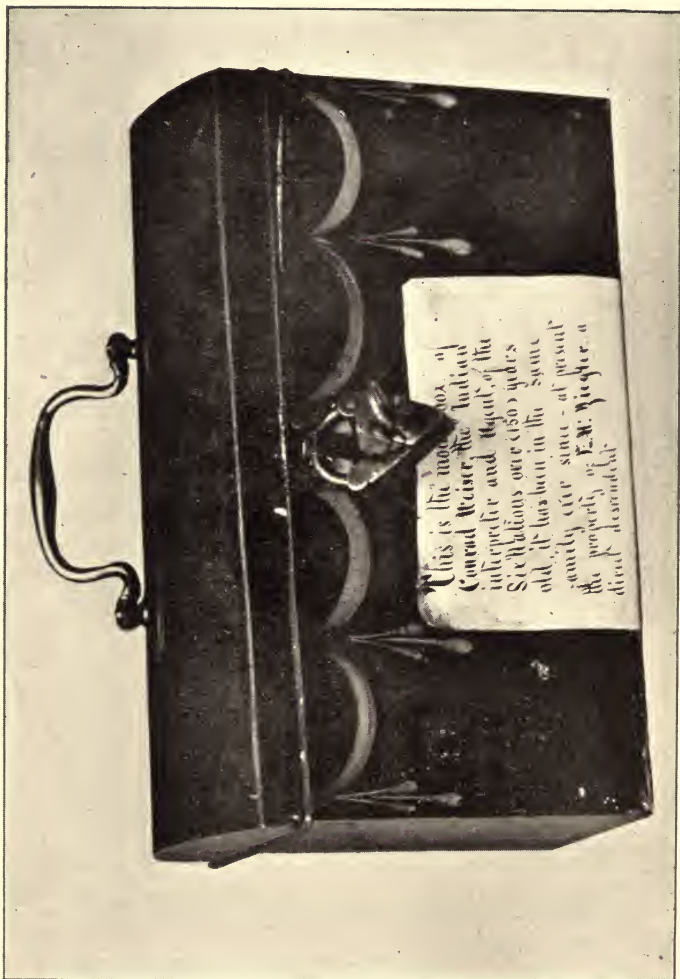 This is the money box of
Conrad Weiser the Indian
interpreter and Agent, of the
Six Nations over (150) years
old it has been in the same
family ever since - at present
the property of F. W. Ziegler a
direct descendent